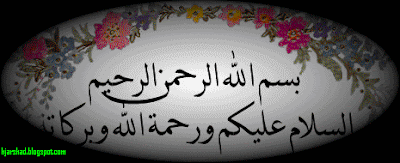 بسم الله الرحمن الرحيم
السلام عليكم ورحمة الله وبركاته
kjarshad.blogspot.com